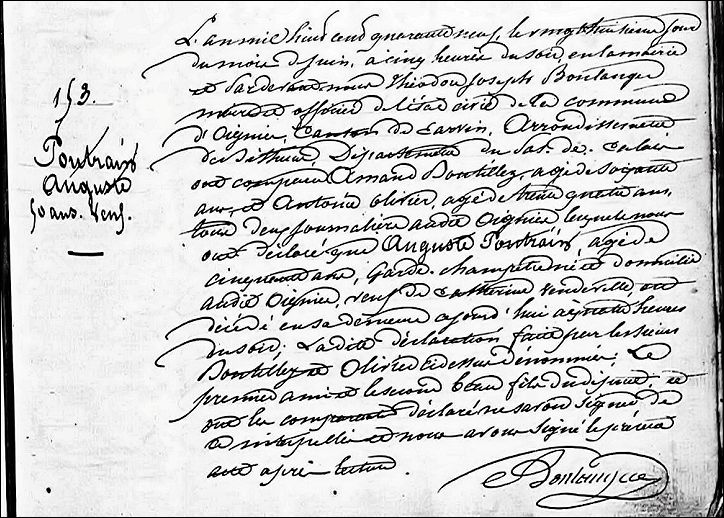 153.
Pontrain
Auguste
50 ans. Veuf.
L'an mil huit cent quarante neuf, le vingt huitième jour
du mois de juin, à cinq heures du soir, en la mairie
et Pardevant nous Théodore Joseph Boulanger
maire et officier de l'état civil de la commune
d'Oignies, Canton de Carvin, Arrondissement
de Béthune, Département du Pas-de-Calais
ont comparu Amand Bontillez, agé de soixante
ans, et Antoine Olivier, agé de trente quatre ans
tous deux journaliers audit Oignies lesquels nous
ont déclaré que Auguste Pontrain, agé de
cinquante ans, Garde-champêtre né et domicilié
audit Oignies, veuf de Catherine Vendeville est
décédé en sa demeure aujourd'hui à quatre heures
du soir; Ladite déclaration faite par les sieurs
Bontillez et Olivier ci dessus dénommés, Le
premier ami et le second beau fils du défunt, et
ont les comparants déclaré ne savoir signer de
ce interpellés et nous avons signé le présent
acte après lecture.